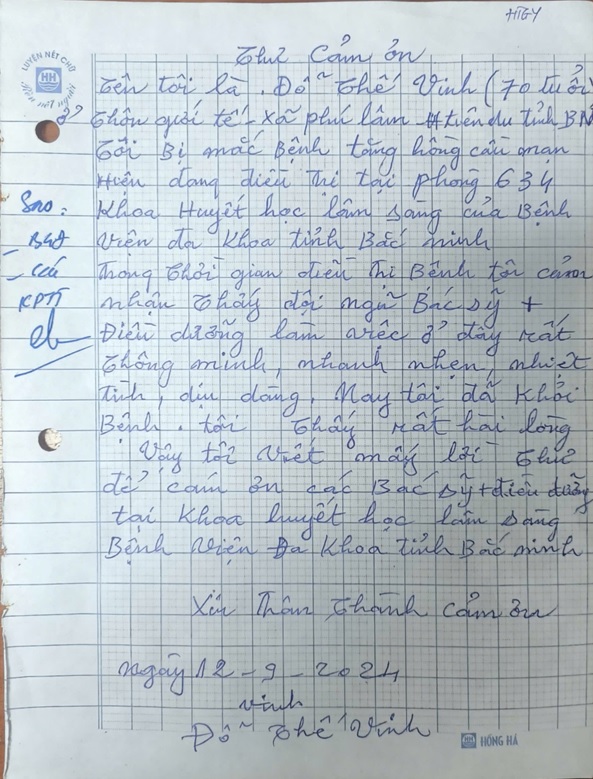 HTGY
LUYỆN NÉT CHỮ
HH
Thư Cảm ơn
Tên tôi là. Đỗ Thế Vinh (70 tuổi)
ở Thôn giới tế - xã phú lâm - H tiên du tỉnh BN
Tôi Bị mắc Bệnh tăng hồng cầu mạn
Hiện đang điều trị tại phòng 634
Khoa Huyết học lâm sàng của Bệnh
viện đa Khoa tỉnh Bắc ninh
Trong thời gian điều trị Bệnh tôi cảm
nhận thấy đội ngũ Bác sỹ +
Điều dưỡng làm việc ở đây rất
thông minh, nhanh nhẹn, nhiệt
tình, dịu dàng, Nay tôi đã khỏi
Bệnh. tôi thấy rất hài lòng
Vậy tôi viết mấy lời thư
để cám ơn các Bác sỹ + điều dưỡng
tại Khoa huyết học lâm sàng
Bệnh viện Đa Khoa tỉnh Bắc ninh
Xin Thân thành cảm ơn
ngày 12 - 9 - 2024
vinh
Đỗ thế Vinh
HH HỒNG HÀ